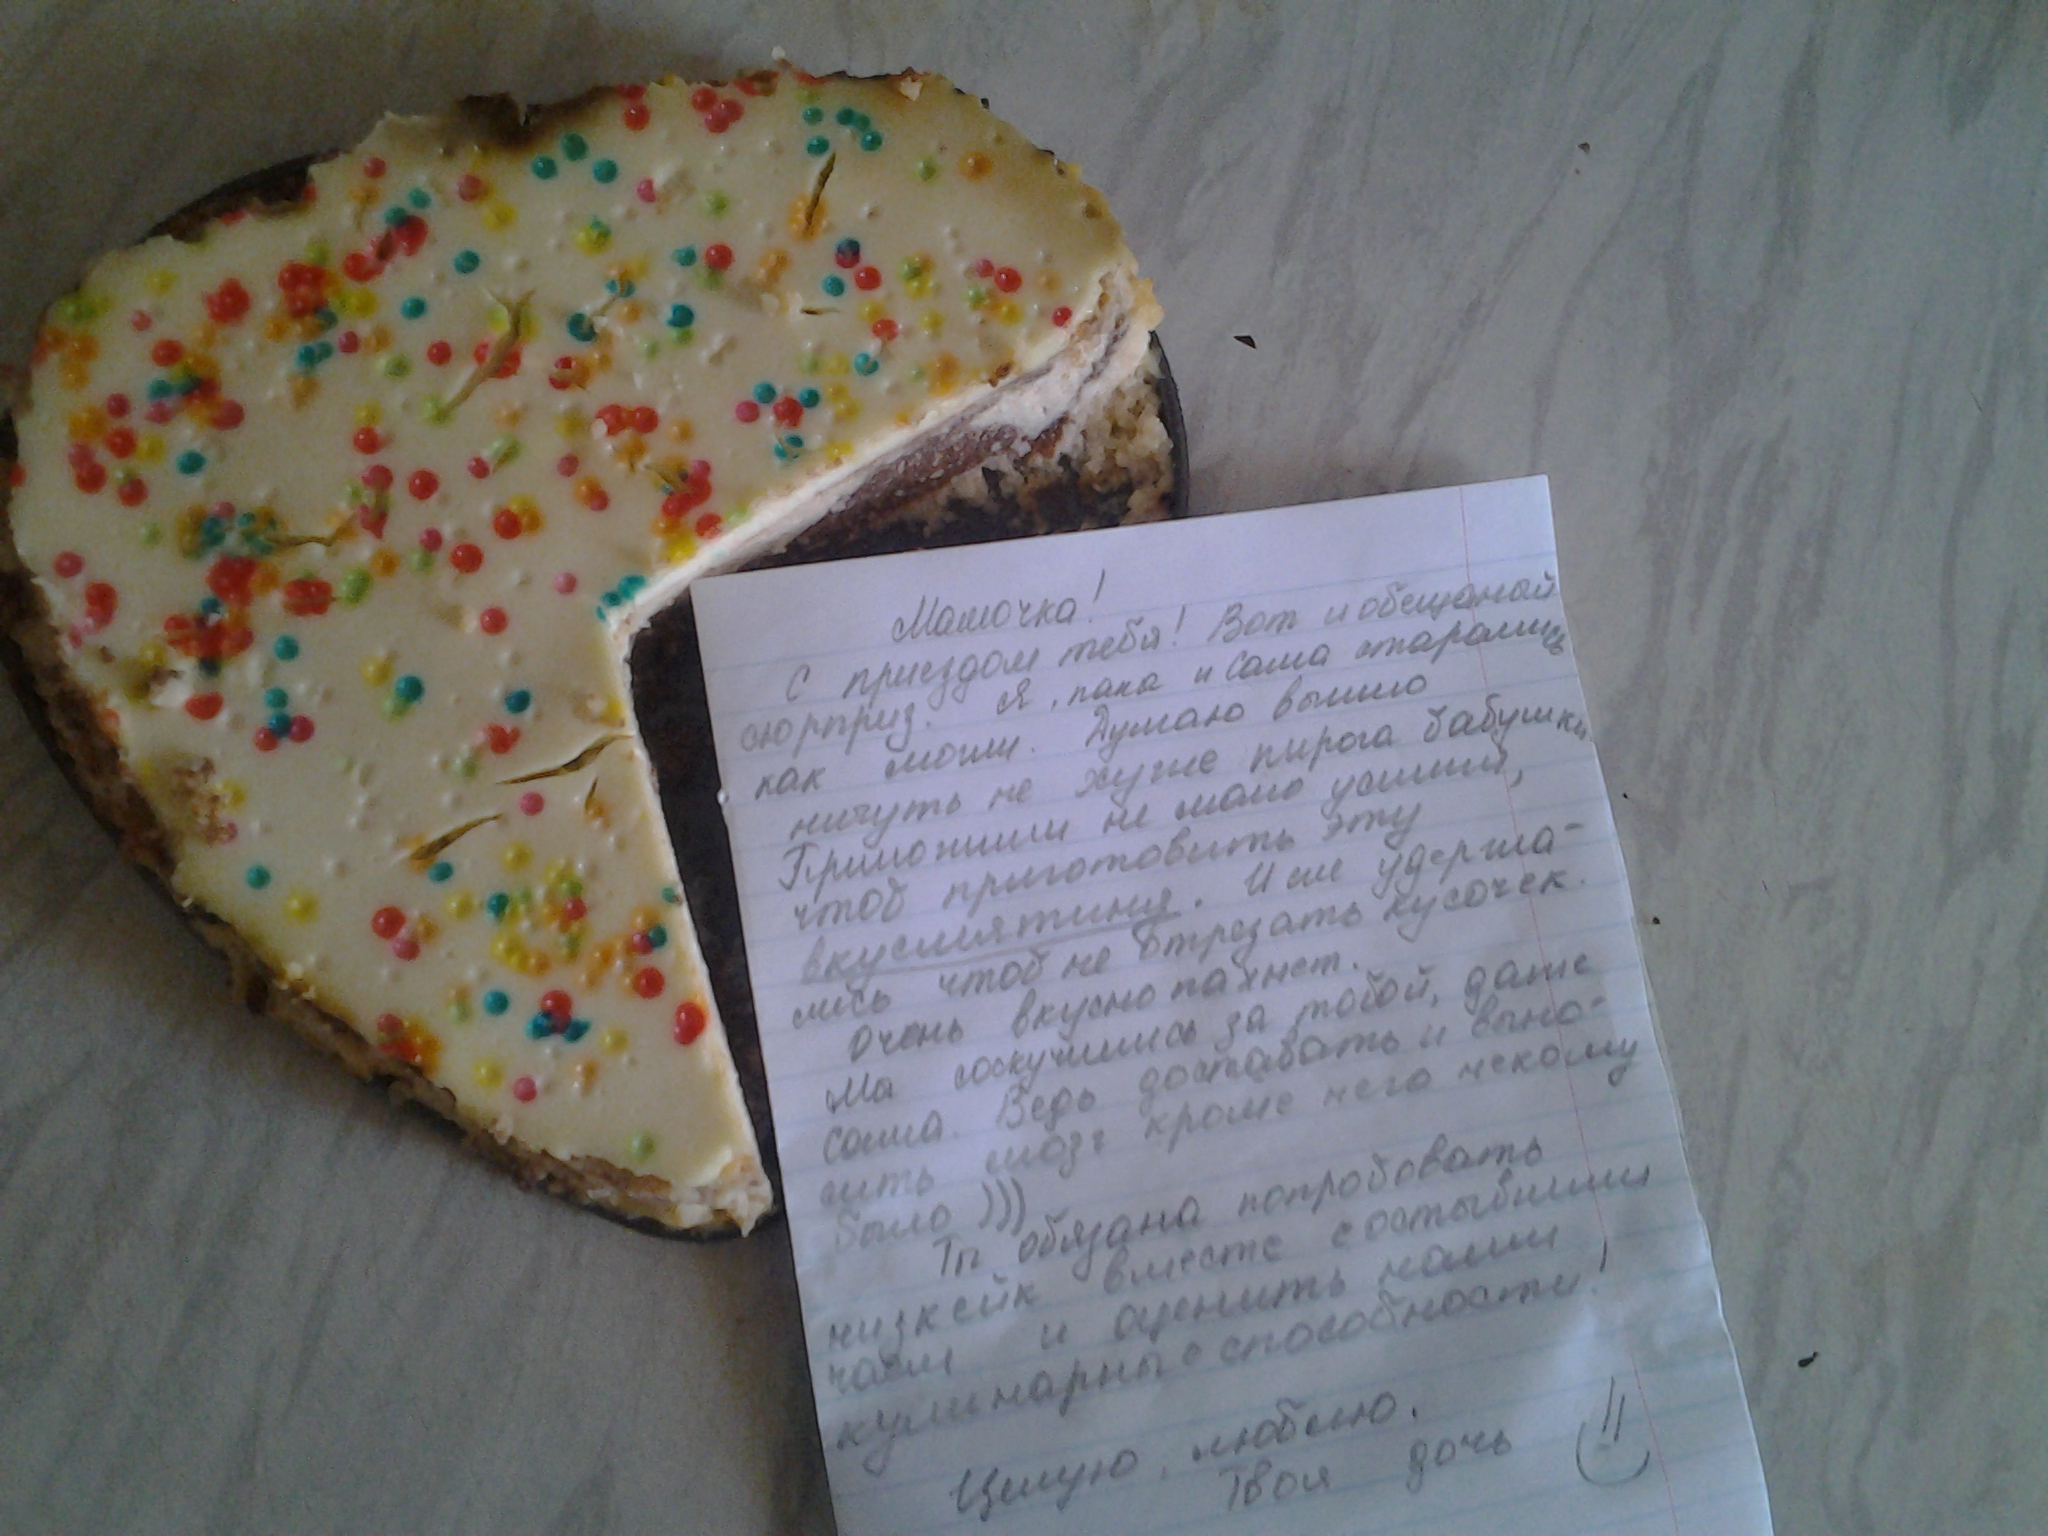 Мамочка!
С приездом тебя! Вот и обещаный
сюрприз. Я, папа и Саша старались
как могли. Думаю вышло
ничуть не хуже пирога бабушки
Приложили не мало усилий,
чтоб приготовить эту
вкуснятину. И не удержа-
лись чтоб не отрезать кусочек.
Очень вкусно пахнет.
Ма соскучились за тобой, даже
Саша. Ведь доставать и выно-
сить мозг кроме него некому
было )))
Ты обязана попробовать
чизкейк вместе с остывшим
чаем и оценить наши
кулинарные способности!
Целую, люблю.
Твоя дочь